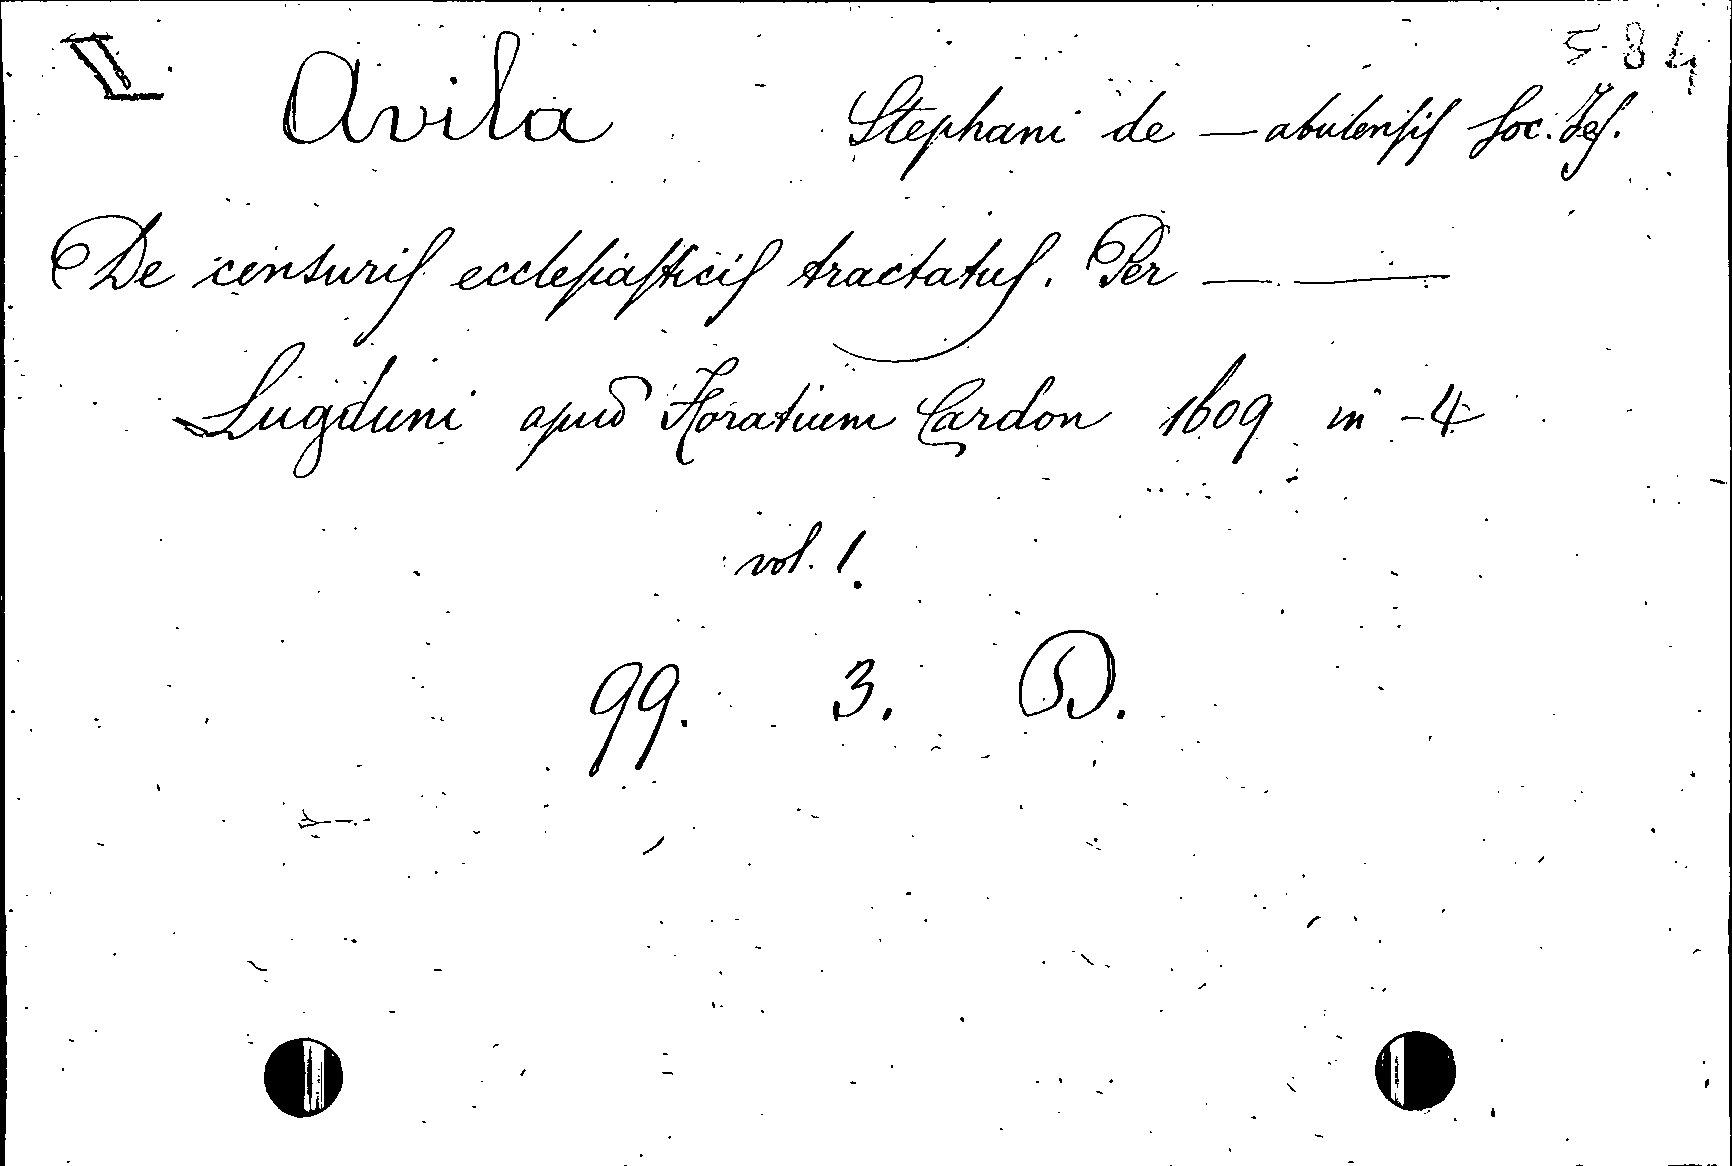 II 584
Avila Stephani de — abulensis Soc. Jes.
De censuris ecclesiasticis tractatus. Per — —
Lugduni apud Horatium Cardon 1609 in - 4
vol. 1.
99. 3. D.